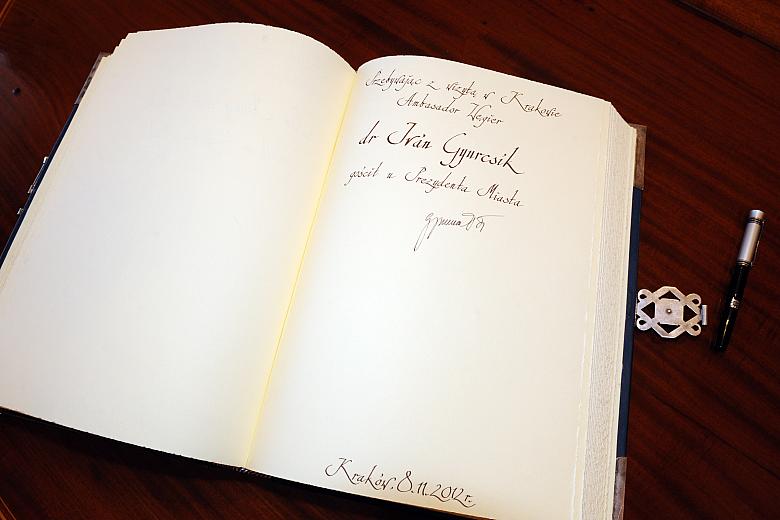 Przebywając z wizytą w Krakowie
Ambasador Węgier
dr Iván Gyurcsik
gościł u Prezydenta Miasta
Kraków, 8.11.2012 r.